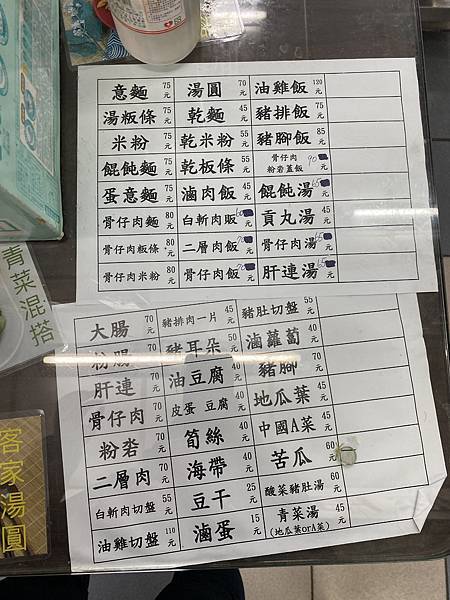 意麵 75元 湯圓 70元 油雞飯 120元
湯粄條 75元 乾麵 45元 豬排飯 75元
米粉 75元 乾米粉 55元 豬腳飯 85元
餛飩麵 75元 乾板條 55元 骨仔肉粉砻蓋飯 90
蛋意麵 75元 滷肉飯 45元 餛飩湯 65
骨仔肉麵 80元 白斬肉販 貢丸湯 45元
骨仔肉粄條 80元 二層肉飯 骨仔肉湯 65
骨仔肉米粉 80元 骨仔肉飯 肝連湯 65
大腸 70元 豬排肉一片 45元 豬肚切盤 55元
粉腸 70元 豬耳朵 50元 滷蘿蔔 40元
肝連 70元 油豆腐 40元 豬腳 70元
骨仔肉 70元 皮蛋 豆腐 40元 地瓜葉 45元
粉砻 70元 筍絲 40元 中國A菜 45元
二層肉 70元 海帶 40元 苦瓜 60元
白斬肉切盤 55元 豆干 25元 酸菜豬肚湯 60元
油雞切盤 110元 滷蛋 15元 青菜湯 45元
(地瓜葉orA菜)
青菜混搭
客家湯圓